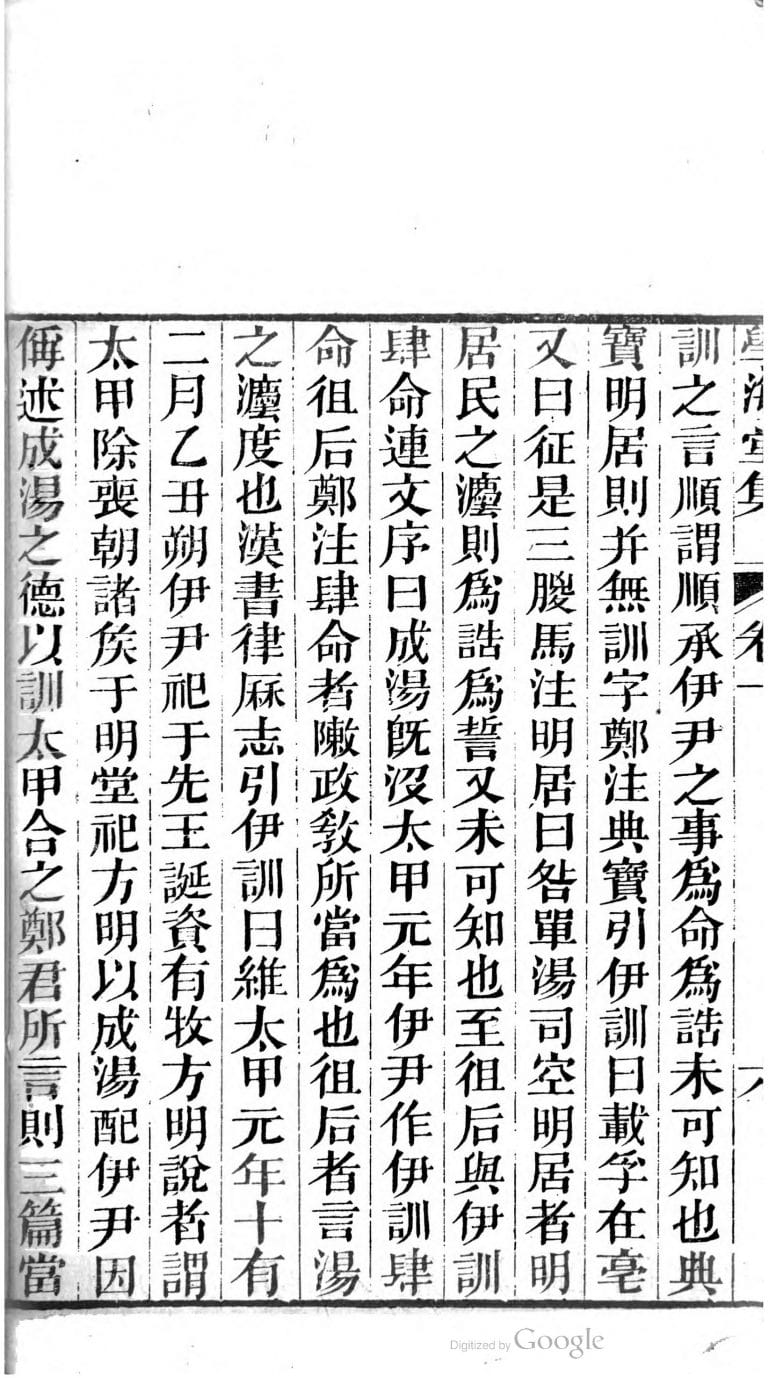 學海堂集 卷一 六
訓之言順謂順承伊尹之事爲命爲誥未可知也典
寶明居則并無訓字鄭注典寶引伊訓曰載孚在亳
又曰征是三朡馬注明居曰咎單湯司空明居者明
居民之灋則爲誥爲誓又未可知也至徂后與伊訓
肆命連文序曰成湯旣沒太甲元年伊尹作伊訓肆
命徂后鄭注肆命者敶政敎所當爲也徂后者言湯
之灋度也漢書律厤志引伊訓曰維太甲元年十有
二月乙丑朔伊尹祀于先王誕資有牧方明說者謂
太甲除喪朝諸矦于明堂祀方明以成湯配伊尹因
偁述成湯之德以訓太甲合之鄭君所言則三篇當
Digitized by Google